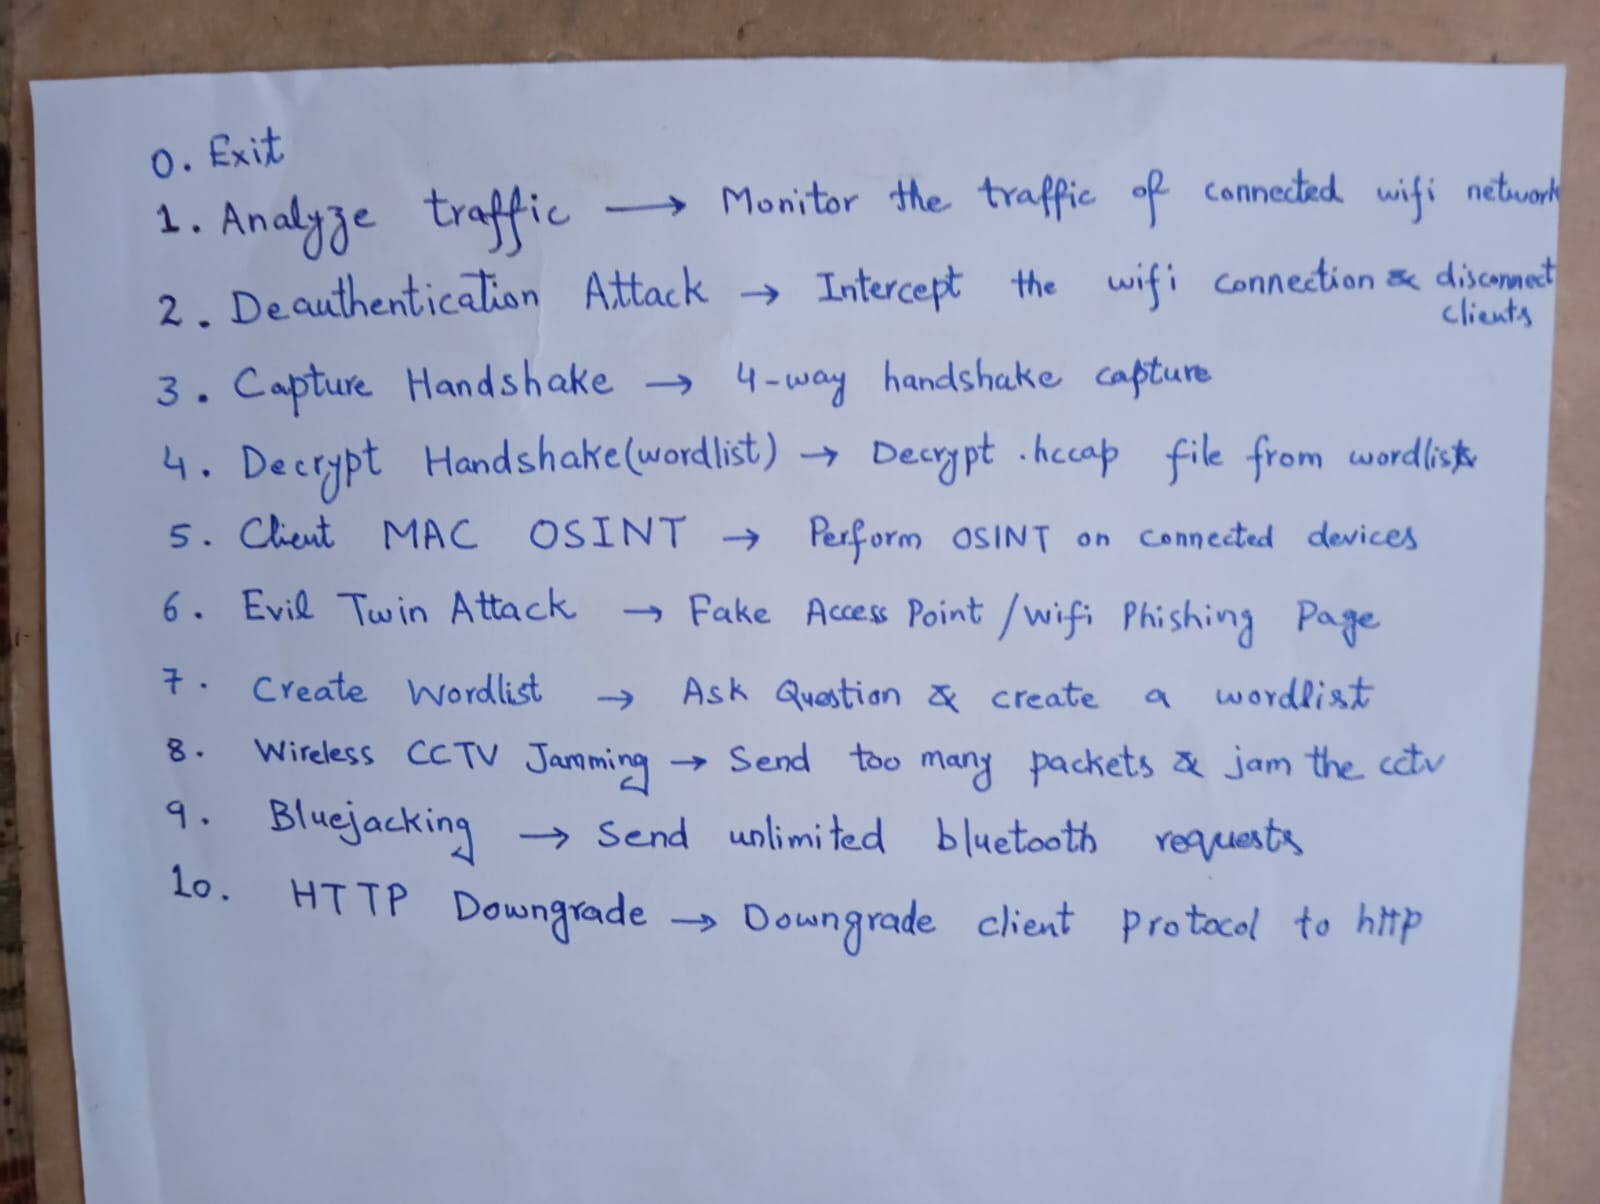 0. Exit
1. Analyze traffic → Monitor the traffic of connected wifi network
2. Deauthentication Attack → Intercept the wifi connection & disconnect
clients
3. Capture Handshake → 4-way handshake capture
4. Decrypt Handshake(wordlist) → Decrypt .hccap file from wordlists
5. Client MAC OSINT → Perform OSINT on connected devices
6. Evil Twin Attack → Fake Access Point /wifi Phishing Page
7. Create Wordlist → Ask Question & create a wordlist
8. Wireless CCTV Jamming → Send too many packets & jam the cctv
9. Bluejacking → Send unlimited bluetooth requests
10. HTTP Downgrade → Downgrade client protocol to http